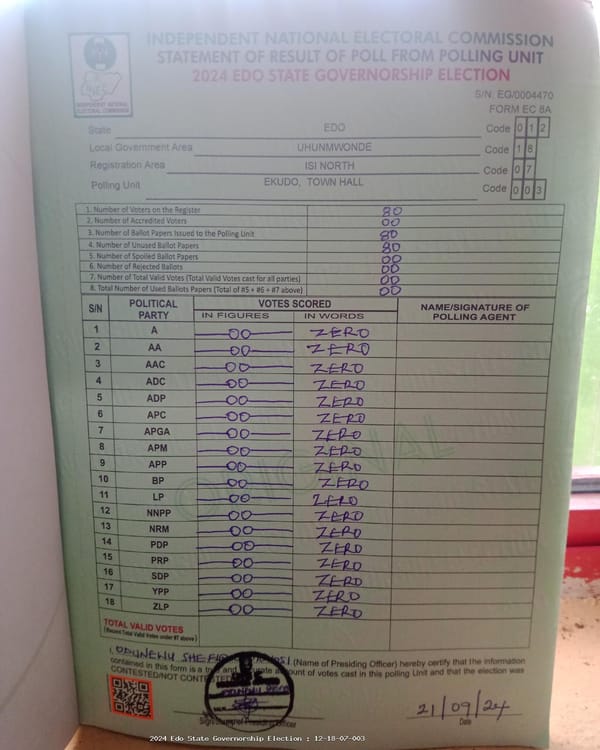 INDEPENDENT NATIONAL ELECTORAL COMMISSION
STATEMENT OF RESULT OF POLL FROM POLLING UNIT
2024 EDO STATE GOVERNORSHIP ELECTION
INDEPENDENT NATIONAL ELECTORAL COMMISSION
S/N. EG/0004470
FORM EC 8A
State EDO Code 0 1 2
Local Government Area UHUNMWONDE Code 1 8
Registration Area ISI NORTH Code 0 7
Polling Unit EKUDO, TOWN HALL Code 0 0 3
1. Number of Voters on the Register 80
2. Number of Accredited Voters 00
3. Number of Ballot Papers Issued to the Polling Unit 80
4. Number of Unused Ballot Papers 80
5. Number of Spoiled Ballot Papers 00
6. Number of Rejected Ballots 00
7. Number of Total Valid Votes (Total Valid Votes cast for all parties) 00
8. Total Number of Used Ballots Papers (Total of #5 + #6 + #7 above) 00
S/N POLITICAL PARTY VOTES SCORED NAME/SIGNATURE OF POLLING AGENT
IN FIGURES IN WORDS
1 A 00 ZERO
2 AA 00 ZERO
3 AAC 00 ZERO
4 ADC 00 ZERO
5 ADP 00 ZERO
6 APC 00 ZERO
7 APGA 00 ZERO
8 APM 00 ZERO
9 APP 00 ZERO
10 BP 00 ZERO
11 LP 00 ZERO
12 NNPP 00 ZERO
13 NRM 00 ZERO
14 PDP 00 ZERO
15 PRP 00 ZERO
16 SDP 00 ZERO
17 YPP 00 ZERO
18 ZLP 00 ZERO
ORIGINAL
TOTAL VALID VOTES
(Record Total Valid Votes under #7 above)
I, (Name of Presiding Officer) hereby certify that the information
contained in this form is a true and accurate account of votes cast in this polling Unit and that the election was
CONTESTED/NOT CONTESTED
21/09/24
Date
2024 Edo State Governorship Election : 12-18-07-003